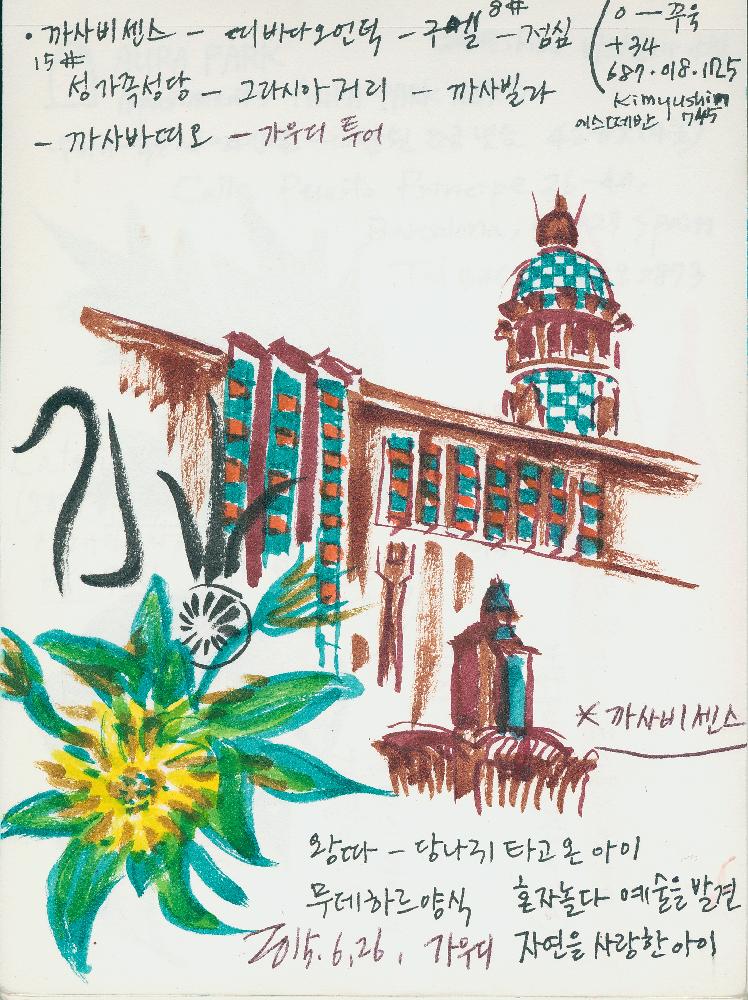 · 까사비센스 - 띠바다오언덕 - 구엘 8# - 점심
15#
성가족성당 - 그라시아거리 - 까사빌라
- 까사바띠오 - 가우디 투어
0 — 꾸욱
+34
687.018.1125
Kimyushin
에스떼반 745
* 까사비센스
왕따 - 당나귀 타고 온 아이
무데하르양식 혼자놀다 예술을 발견
2015.6.26. 가우디 자연을 사랑한 아이